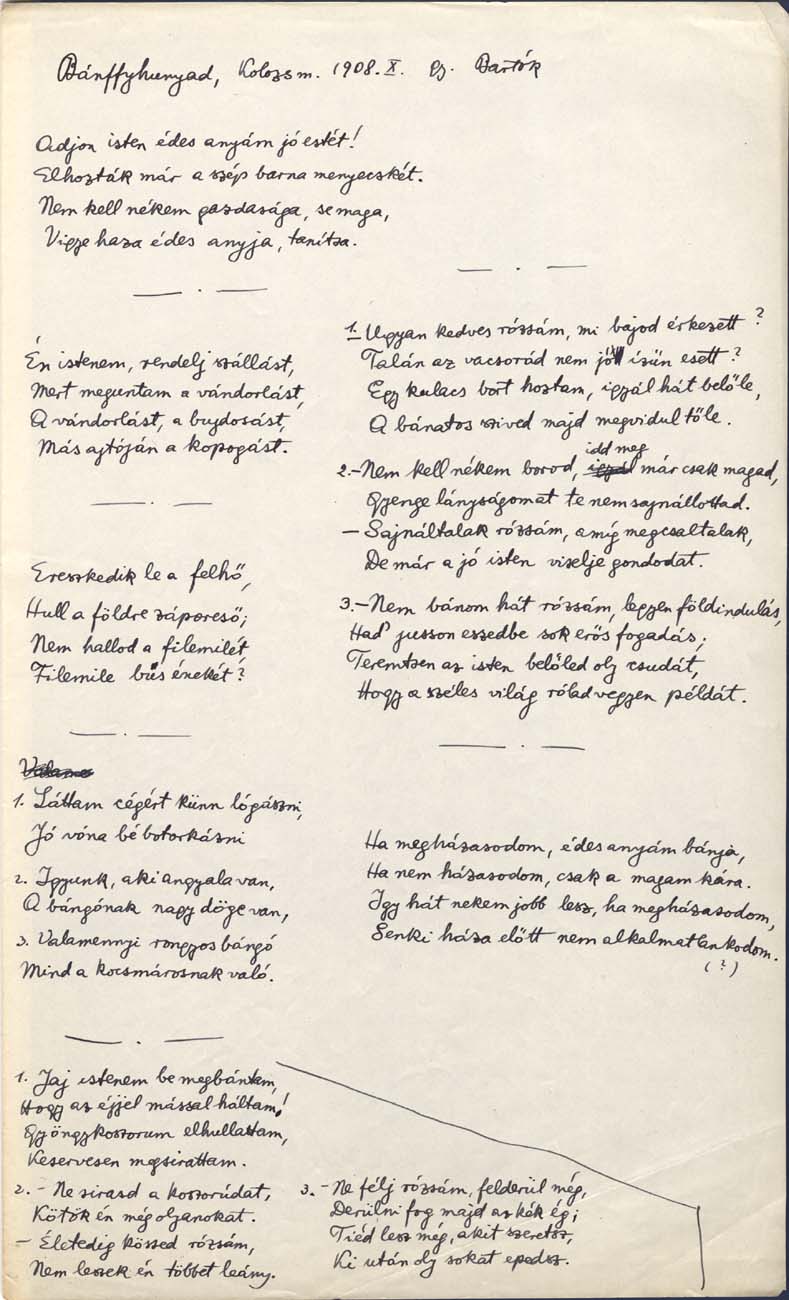 Bánffyhunyad, Kolozsm. 1908. X. gy. Bartók
Adjon isten édes anyám jó estét!
Elhozták már a szép barna menyecskét.
Nem kell nékem gazdasága, se maga,
Vigye haza édes anyja, tanítsa.
Én istenem, rendelj szállást,
Mert meguntam a vándorlást,
A vándorlást, a bujdosást,
Más ajtóján a kopogást.
Ereszkedik le a felhő,
Hull a földre záporeső;
Nem hallod a filemilét,
Filemile bús énekét?
1. Láttam cégért künn lógászni,
Jó vóna bé botorkázni
2. Igyunk, aki angyala van,
A bángónak nagy döge van,
3. Valamennyi rongyos bángó
Mind a kocsmárosnak való.
1. Jaj istenem be megbántam,
Hogy az éjjel mással háltam!
Gyöngykoszorum elhullattam,
Keservesen megsirattam.
2. - Ne sirasd a koszorúdat,
Kötök én még olyanokat.
- Életedig kössed rózsám,
Nem leszek én többet leány.
3. - Ne félj rózsám, felderül még,
Derülni fog majd az kék ég;
Tiéd lesz még, akit szeretsz,
Ki után oly sokat epedsz.
1. Ugyan kedves rózsám, mi bajod érkezett?
Talán az vacsorád nem jó izün esett?
Egy kulacs bort hoztam, igyál hát belőle,
A bánatos szived majd megvidul tőle.
2. - Nem kell nékem borod, idd meg már csak magad,
Gyenge lányságomat te nem sajnállottad.
- Sajnáltalak rózsám, amíg megcsaltalak,
De már a jó isten viselje gondodat.
3. - Nem bánom hát rózsám, legyen földindulás,
Had' jusson eszedbe sok erős fogadás;
Teremtsen az isten belőled oly csudát,
Hogy a széles világ rólad vegyen példát.
Ha megházasodom, édes anyám bánja,
Ha nem házasodom, csak a magam kára.
Igy hát nekem jobb lesz, ha megházasodom,
Senki háza előtt nem alkalmatlankodom.
(?)